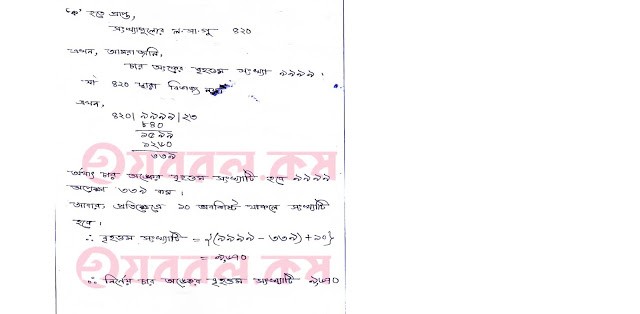 'ক' হতে প্রাপ্ত,
সংখ্যাগুলোর ল.সা.গু ৪২০
এখন, আমরা জানি,
চার অংকের বৃহত্তম সংখ্যা ৯৯৯৯।
যা ৪২০ দ্বারা বিভাজ্য নয়।
এখন,
৪২০) ৯৯৯৯ (২৩
৮৪০
১৫৯৯
১২৬০
৩৩৯
অর্থাৎ চার অঙ্কের বৃহত্তম সংখ্যাটি হবে ৯৯৯৯
অপেক্ষা ৩৩৯ কম।
আবার, প্রতিক্ষেত্রে ১০ অবশিষ্ট থাকলে সংখ্যাটি
হবে।
∴ বৃহত্তম সংখ্যাটি = {(৯৯৯৯ - ৩৩৯) + ১০}
= ৯৬৭০
∴ নির্ণেয় চার অঙ্কের বৃহত্তম সংখ্যাটি ৯৬৭০